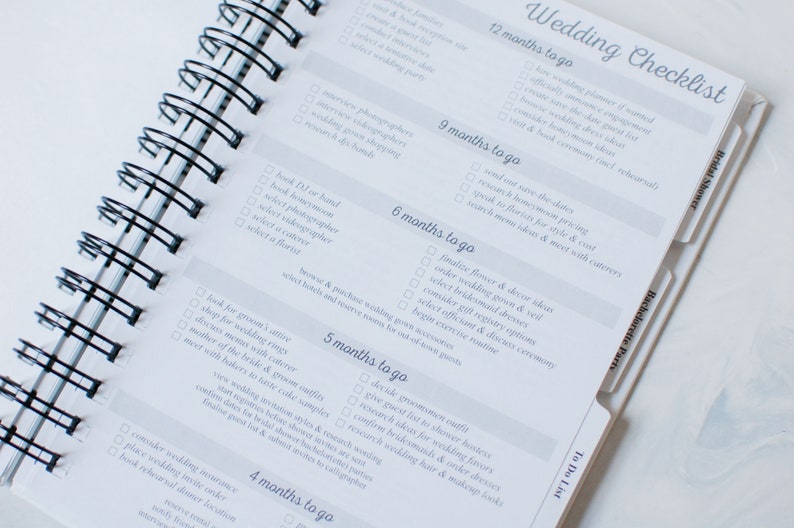 Wedding Checklist
12 months to go
families
visit & book reception site
create a guest list
conduct interviews
select a tentative date
select wedding party
hire wedding planner if wanted
officially announce engagement
create save-the-date guest list
browse wedding dress ideas
consider honeymoon ideas
visit & book ceremony (incl rehearsal)
9 months to go
interview photographers
interview videographers
wedding gown shopping
research djs/bands
send out save-the-dates
research honeymoon pricing
speak to florists for style & cost
search menu ideas & meet with caterers
6 months to go
book DJ or band
book honeymoon
select photographer
select videographer
select a caterer
select a florist
finalize flower & decor ideas
order wedding gown & veil
select bridesmaid dresses
consider gift registry options
select officiant & discuss ceremony
begin exercise routine
browse & purchase wedding gown accessories
select hotels and reserve rooms for out-of-town guests
5 months to go
look for groom's attire
shop for wedding rings
discuss menus with caterer
mother of the bride & groom outfits
meet with bakers to taste cake samples
decide groomsmen outfit
give guest list to shower hostess
research ideas for wedding favors
confirm bridesmaids & order dresses
research wedding hair & makeup looks
view wedding invitation styles & research wording
start registries before shower invites are sent
confirm dates for bridal shower/bachelor(ette) parties
finalise guest list & submit invites to calligrapher
4 months to go
consider wedding insurance
place wedding invite order
book rehearsal dinner location
reserve rental
notify friends
Bridal Shower
Bachelorette Party
To Do List